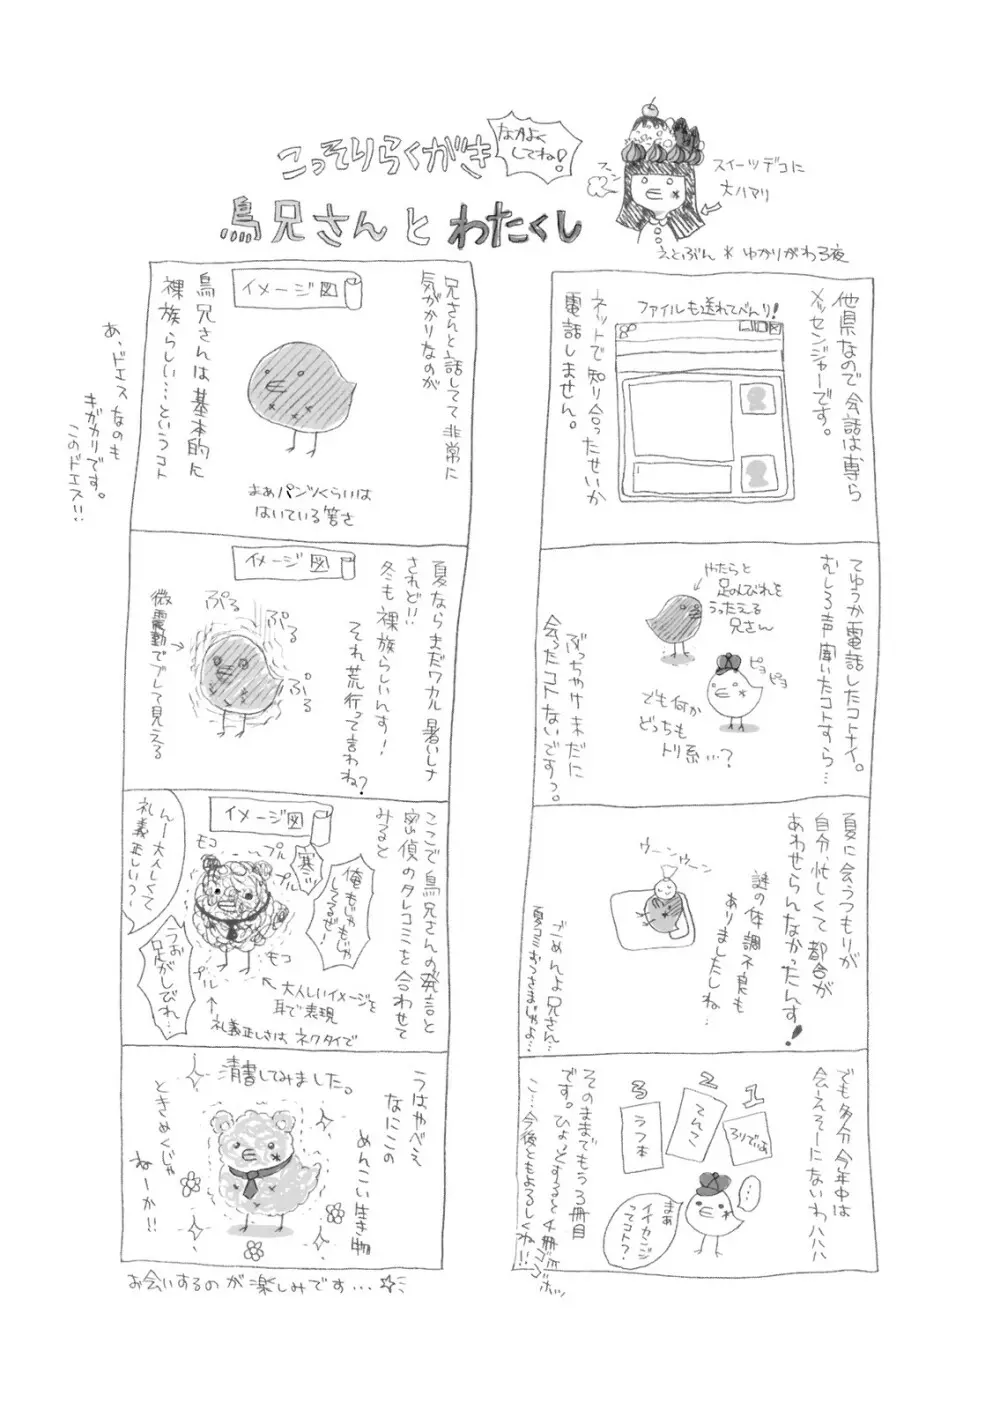 こっそりらくがき
なかよく
してね!
鳥兄さんとわたくし
フン
スイーツデコに
大ハマリ
えとぶん*ゆかりがわる夜
他県なので会話は専ら
メッセンジャーです。
ファイルも送れてべんり!
ネットで知り合ったせいか
電話しません。
てゆうか電話したコトナイ。
むしろ声聞いたコトすら…
やたらと
足のしびれを
うったえる
兄さん
ピョ
ピョ
でも何か
どっちも
トリ系…?
ぶっちゃけまだに
会ったコトないですっ。
夏に会うつもりが
自分、忙しくて都合が
あわせらんなかったんす!
ウーンウーン
謎の体調不良も
ありましたしね…
ごめんよ兄さん…
夏コミおつさまじゃよ…
でも多分今年中は
会えそーにないわハハハ
1
2
3
ろりでぃあ
てんく
うフ本
…
まぁ
イイセンジ
ってコト?
そのままでもう3冊目
です。ひょっとすると4冊
こ…今後ともよろしくね!!
ゴホッ
兄さんと話してて非常に
気がかりなのが
イメージ図
鳥兄さんは基本的に
裸族らしい…というコト
まぁパンツくらいは
はいている筈さ
あ、ドエスなのも
キガカリです。
このドエス!!
夏ならまだワカル暑いしさ
されど!!
冬も裸族らしいんす!
それ荒行って言わね?
イメージ図
ぷる
ぷる
ぷる
微震動でブレて見える
ここで鳥兄さんの発言と
密偵のタレコミを合わせて
みると
イメージ図
モコ
プル
プル
寒ッ
俺もじゃもじゃ
してるぜ!
んー大人しくて
礼義正しい?
うお
足がしびれ…
モコ
プル
大人しいイメージを
耳で表現
礼義正しさは、ネクタイで
清書してみました。
うはやべえ
なにこの
めんこい生き物
ときめくじゃ
ねーか!!
お会いするのが楽しみです…☆